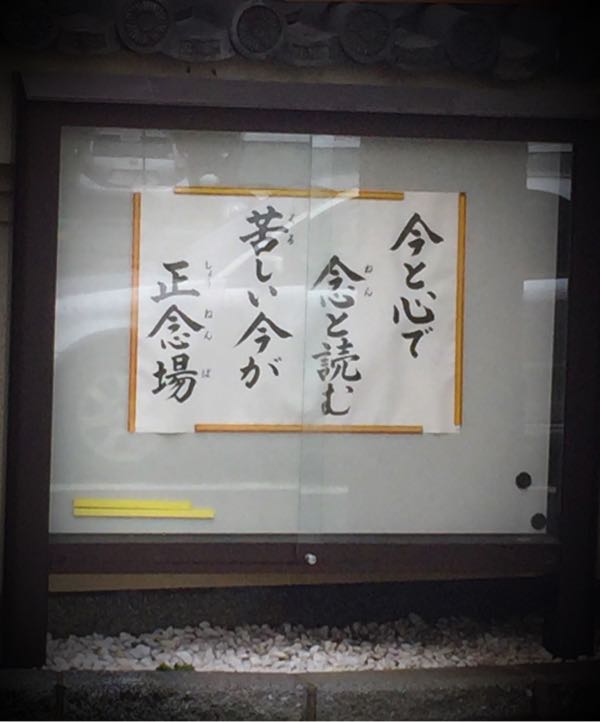 今と心で
念と読む
ねん
苦しい今が
くる
正念場
しょうねんば